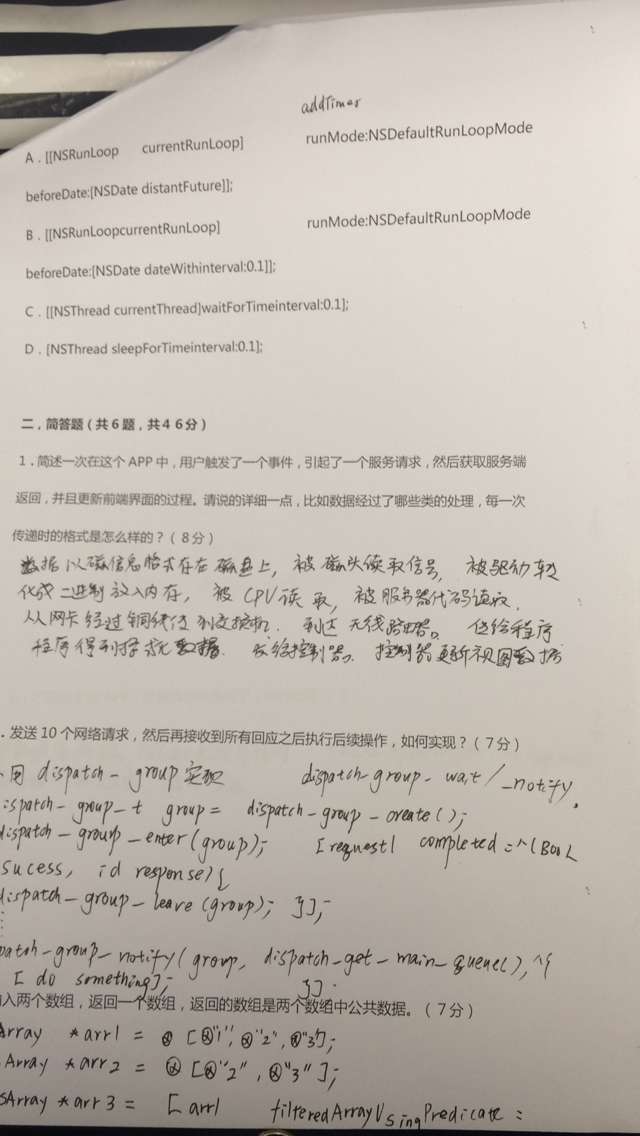 addTimer
A . [[NSRunLoop currentRunLoop] runMode:NSDefaultRunLoopMode
beforeDate:[NSDate distantFuture]];
B . [[NSRunLoopcurrentRunLoop] runMode:NSDefaultRunLoopMode
beforeDate:[NSDate dateWithinterval:0.1]];
C . [[NSThread currentThread]waitForTimeinterval:0.1];
D . [NSThread sleepForTimeinterval:0.1];
二 . 简答题 ( 共 6 题 , 共 4 6 分 )
1 . 简述一次在这个 APP 中 , 用户触发了一个事件 , 引起了一个服务请求 , 然后获取服务端
返回 , 并且更新前端界面的过程。请说的详细一点 , 比如数据经过了哪些类的处理 , 每一次
传递时的格式是怎么样的 ? ( 8 分 )
数据以磁信息格式存在磁盘上, 被磁头读取信号, 被驱动转
化成二进制放入内存, 被 CPU 读取, 被服务器代码读取.
从网卡经过铜线传到交换机. 到达无线路由器。 传给程序
程序得到 数据. 发给控制器。 控制器更新视图数据
. 发送 10 个网络请求 , 然后再接收到所有回应之后执行后续操作 , 如何实现 ? ( 7 分 )
. 用 dispatch-group 实现 dispatch-group-wait / _notify.
ispatch-group-t group = dispatch-group-create();
dispatch-group-enter(group); [request1 completed:^(BOOL
sucess, id response){
dispatch-group-leave(group); }];
patch-group-notify(group, dispatch-get-main-queue(), ^{
[do something]; }].
入两个数组 , 返回一个数组 , 返回的数组是两个数组中公共数据。( 7 分 )
Array *arr1 = @[@"1", @"2", @"3"];
Array *arr2 = @[@"2", @"3"];
SArray *arr3 = [arr1 filteredArrayUsingPredicate: